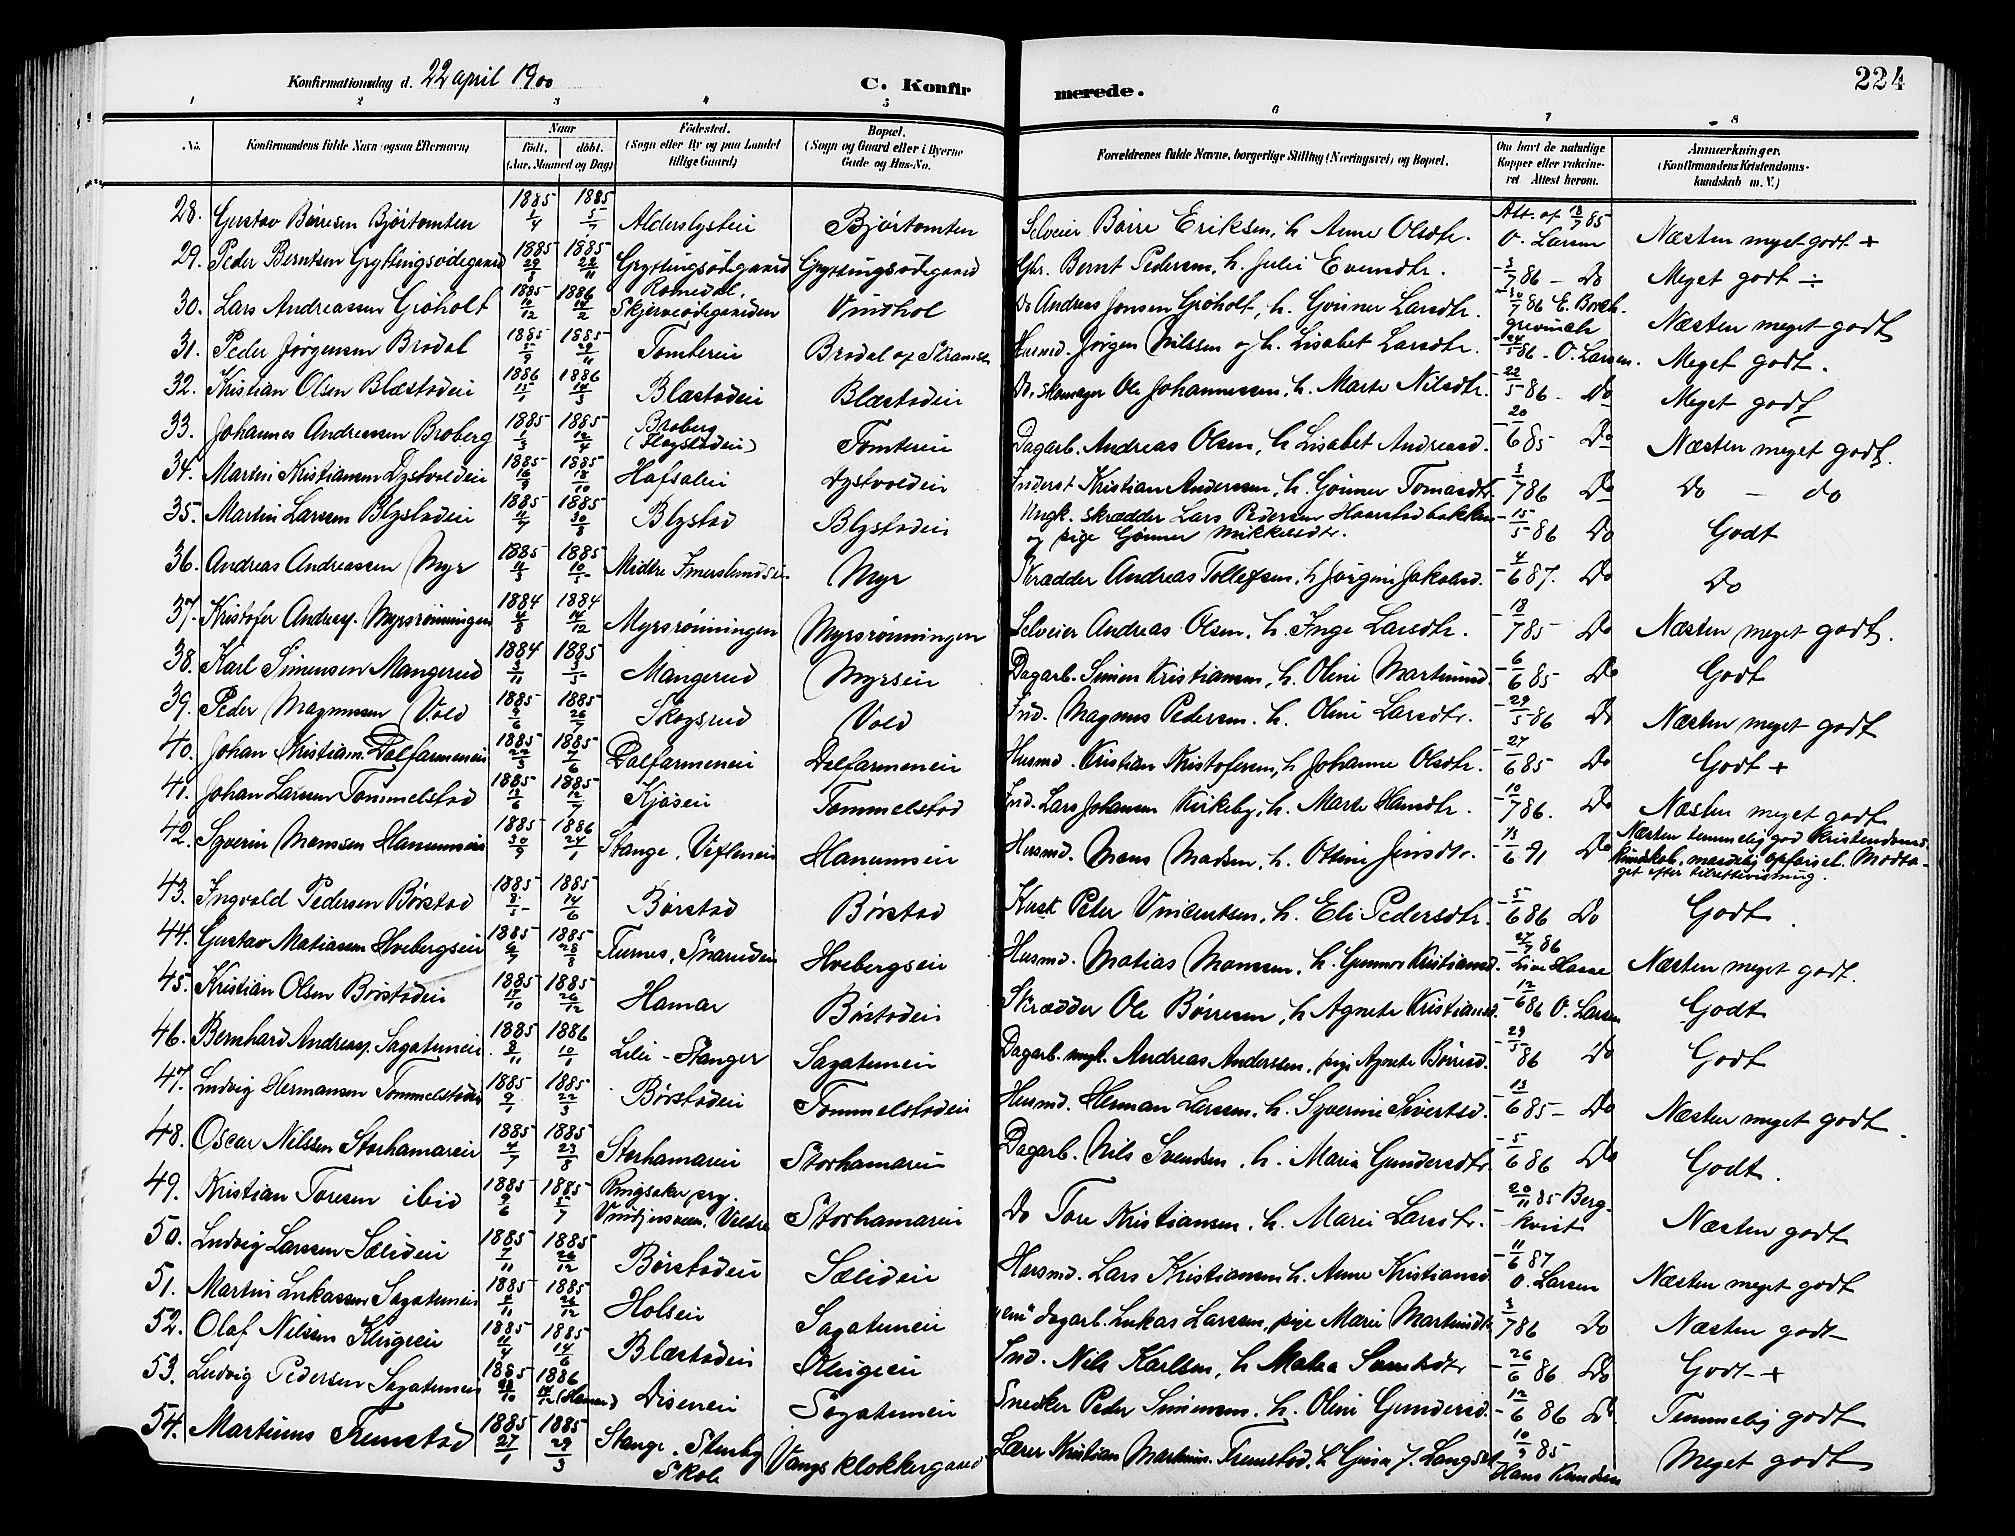 Konfirmationsdag d. 22 april 1900 C. Konfirmerede. 224
1 2 3 4 5 6 7 8
No. Konfirmandens fulde Navn (ogsaa Efternavn) Naar født. døbt. (Aar, Maaned og Dag) Fødested. (Sogn eller By og paa Landet tillige Gaard) Bopæl. (Sogn og Gaard eller i Byerne Gade og Hus-No. Forældrenes fulde Navne, borgerlige Stilling (Næringsvei) og Bopæl. Om havt de naturlige Kopper eller vakcineret Attest herom. Anmærkninger. (Konfirmandens Kristendomskundskab m. V.)
28. Gustav Børresen Bjørtomten 1885 1885 5/7 Alderslysteii Bjørtomten Selveier Børre Eriksen, h. Anne Olsdtr. Att. af 18/7 85 O. Larsen Næsten meget godt +
29. Peder Berntsen Gryttingsødegaard 1885 1885 22/11 Gryttingsødegaard Gryttingsødegaard Gbr. Bernt Pedersen, h. Julie Evensdtr. - 3/7 86 - Do Meget godt ÷
30. Lars Andreassen Grøholt 1885 10/12 1886 14/2 Romedal, Skjerveødegaarden Vindhol Do Andreas Jonsen Grøholt, h. Gønner Larsdtr. - 30/7 86 E. Borchgrevinck Næsten meget godt
31. Peder Jørgensen Brodal 1885 5/9 1885 29/11 Tomterei Brodal af Skramst. Husmd. Jørgen Nilssen og h. Lisabet Larsdtr. - 24/5 86 - O. Larsen. Meget godt.
32. Kristian Olsen Blæstadeii 1886 15/1 1886 14/3 Blæstadeii Blæstadeii Do, skomager Ole Johannessen, h. Marte Nilsdtr. - 22/5 86 - Do Meget godt
33. Johannes Andreassen Broberg 1885 1/3 1885 12/4 Broberg (Flagstadeii) Tomterei Dagarb. Andreas Olsen, h. Lisabet Andreasd. - 20/6 85 - Do Næsten meget godt.
34. Martin Kristiansen Dystvoldeii 1885 16/9 1885 18/10 Hafsaleii Dystvoldeii Inderst Kristian Anderssen, h. Gønner Tomasdtr. 3/7 86 Do Do - do
35. Martin Larssen Blystadeii 1885 11/7 1885 30/8 Blystad Blystadeii Ungk. skrædder Lars Pedersen Haarstadbakken og pige Gønner Mikkelsdtr. - 15/5 86 Do Godt
36. Andreas Andreassen Myr 1885 11/3 1885 10/5 Midtre Imerslundseii Myr Skrædder Andreas Tollefsen, h. Jørgine Jakobsd. - 4/6 87. Do Do
37. Kristofer Andreas. Myrsrønningen 1884 4/8 1884 14/12 Myrsrønningen Myrsrønningen Selveier Andreas Olsen, h. Inge Larsdtr. - 18/7 85 Do Næsten meget godt.
38. Karl Simensen Mangerud 1884 3/11 1885 3/5 Mangerud Myrseii Dagarb. Simen Kristiansen, h. Oline Martinusd. - 6/6 85 Do Godt
39. Peder Magnussen Vold 1885 9/6 1885 26/7 Skogsrud Vold Ind. Magnus Pedersen, h. Oline Larsdtr. - 29/5 86 Do Næsten meget godt
40. Johan Kristians. Dalfarmeneii 1885 22/3 1885 7/6 Dalfarmeneii Dalfarmeneii Husmd. Kristian Kristofersen, h. Johanne Olsdtr. - 27/6 85 Do Godt +
41. Johan Larssen Tommelstad 1885 12/6 1885 12/7 Kjøseii Tommelstad Ind. Lars Johansen Kirkeby, h. Marte Hansdtr. - 10/7 86. Do Næsten meget godt
42. Syverin Monssen Hanumseii 1885 30/9 1886 24/1 Stange, Hanumseii Husmd. Mons Madsen, h. Ottine Jensdtr. - 13/6 91 Do Næsten temmelig god Kristendomskundskab, maadelig opførsel. Modtaget efter tilrettevisning.
43. Ingvald Pedersen Børstad 1885 8/5 1885 14/6 Børstad Børstad Kusk Peter Vincentsen, h. Eli Pedersdtr. - 5/6 86 Do Godt.
44. Gustav Matiassen Hvebergseii 1885 6/7 1885 28/8 Furnes, Hvebergseii Husmd. Matias Monssen, h. Gunnor Kristiansd. - 27/7 86 Næsten meget godt.
45. Kristian Olsen Børstadeii 1885 17/10 1885 26/12 Hamar Børstadeii Skrædder Ole Børresen, h. Agnete Kristiansd. - 12/6 86 O. Larsen Godt
46. Bernhard Andreas. Sagatuneii 1885 8/11 1886 10/1 Lille-Stanger Sagatuneii Dagarb. ungk. Andreas Anderssen, pige Agnete Børresd. - 29/5 86 Do Godt
47. Ludvig Hermansen Tommelstadeii 1885 9/1 1885 22/3 Børstadeii Tommelstadeii Husmd. Herman Larssen, h. Syverine Sivertsd. - 13/6 85 - Do Næsten meget godt.
48. Oscar Nilssen Storhamareii 1885 4/7 1885 23/8 Storhamareii Storhamareii Dagarb. Nils Svendsen, h. Maria Gundersdtr. - 5/6 86 Do Godt.
49. Kristian Toresen ibid 1885 9/6 1885 5/7 Ringsaker prg. Veldre Storhamareii Do Tore Kristiansen, h. Marie Larsdtr. - 20/11 85 Bergkvist Næsten godt
50. Ludvig Larssen Sælideii 1885 7/11 1885 26/12 Børstadeii Sælideii Husmd. Lars Kristiansen h. Anne Kristiansd. - 11/6 87 O. Larsen Næsten meget godt
51. Martin Lukassen Sagatuneii 1885 1885 26/12 Holseii Sagatuneii dagarb. Lukas Larssen, pige Marie Martinsdtr. 3/7 86 Do Næsten godt
52. Olaf Nilsen Klingeii 1885 11/4 1885 14/6 Blæstadeii Klingeii Ind. Nils Karlsen, h. - 26/6 86 Do Godt - +
53. Ludvig Pedersen Sagatuneii 1885 1886 (Hamar) Diseneii Sagatuneii Snedker Peder Simensen, h. Oline Gundersd. - 12/6 86 Do Temmelig godt
54. Martinus Frenstad 1885 27/1 1885 29/3 Stange, Skole Vangs klokkergaard Lærer Kristian Martinus. Frenstad, h. 10/9 85 Hans Knudsen Meget godt